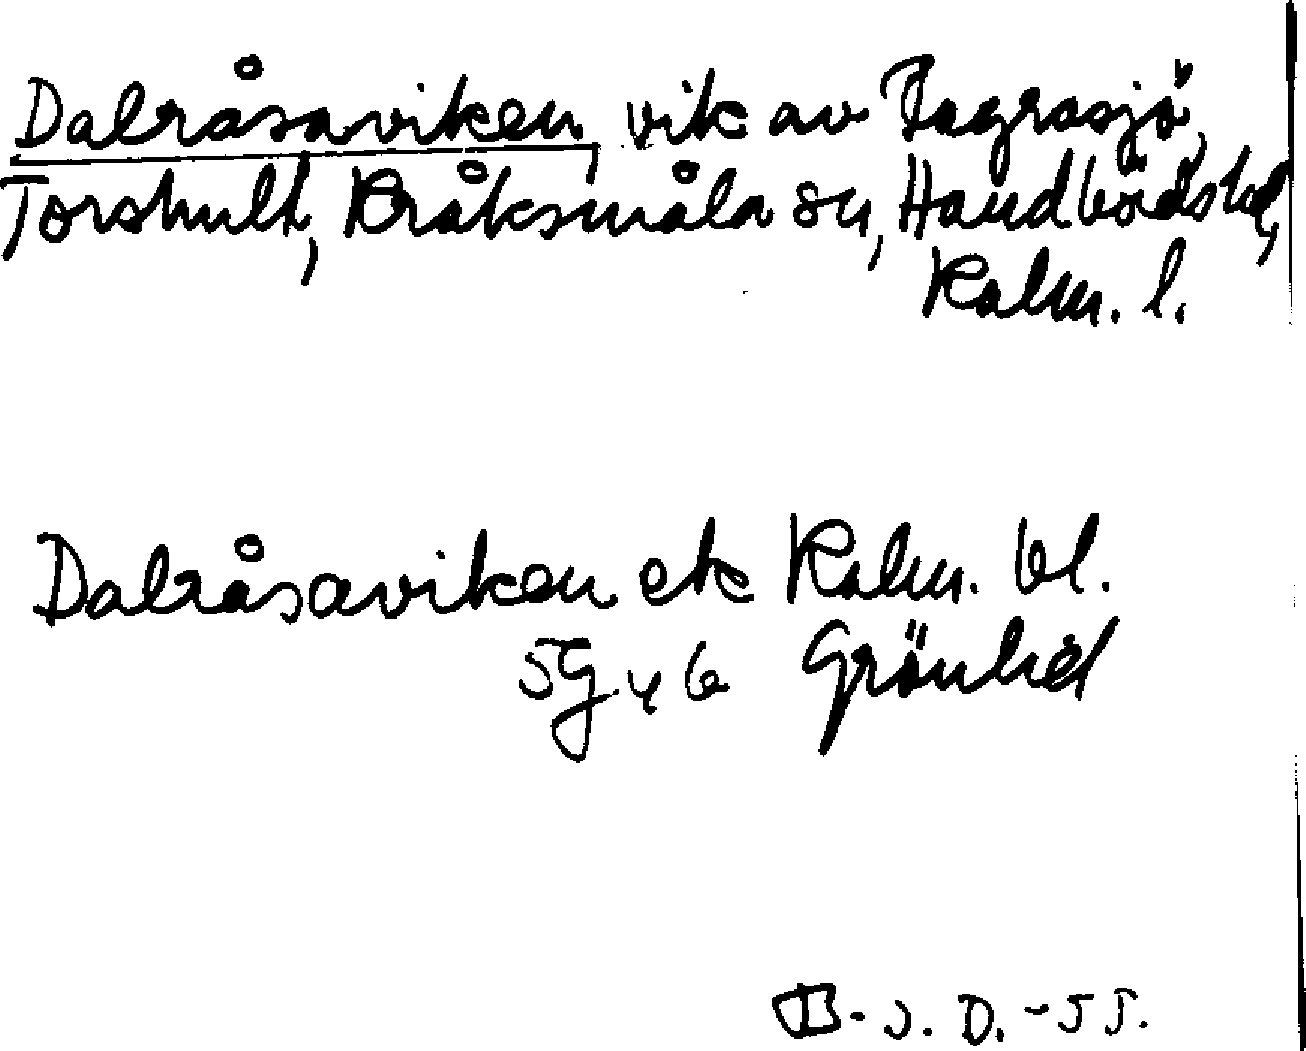 Dalråsaviken, vik av Bagrasjö,
Torshult, Kråksmåla sn, Handbörds hd,
Kalm. l.
Dalråsaviken ek Kalm. bl.
5G 4 b Grönhid
B-J. D. -55.